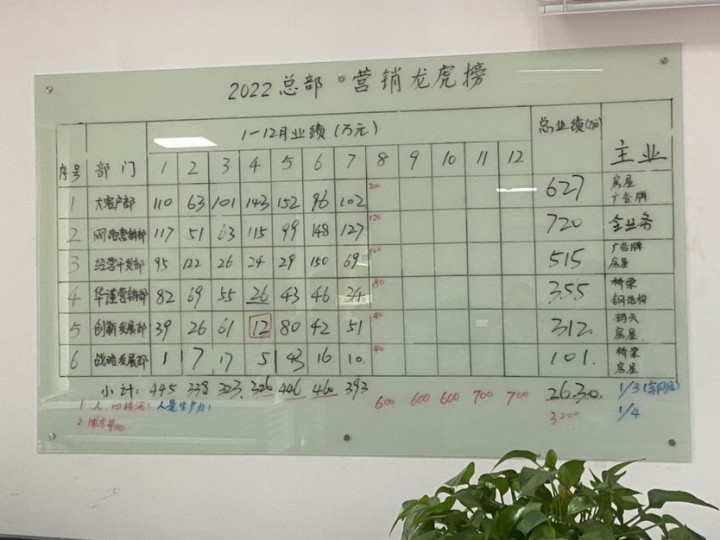 2022 总部·营销龙虎榜
序号 部门 1-12月业绩(万元) 总业绩(万) 主业
1 2 3 4 5 6 7 8 9 10 11 12
1 大客户部 110 63 101 143 152 96 102 200 627 房屋 广告牌
2 网络营销部 117 51 63 115 99 148 127 120 720 全业务
3 经营开发部 95 122 26 24 29 150 69 515 广告牌 房屋
4 华谨营销部 82 69 55 26 43 46 34 80 355 桥梁 钢结构
5 创新发展部 39 26 61 12 80 42 51 312. 码头 房屋
6 战略发展部 1 7 17 5 43 16 10. 101. 桥梁 房屋
小计: 445 338 323. 326 446 460 393 600 600 600 700 700 2630. 1/3
1. 人 人是生产力!
2. 3200 1/4